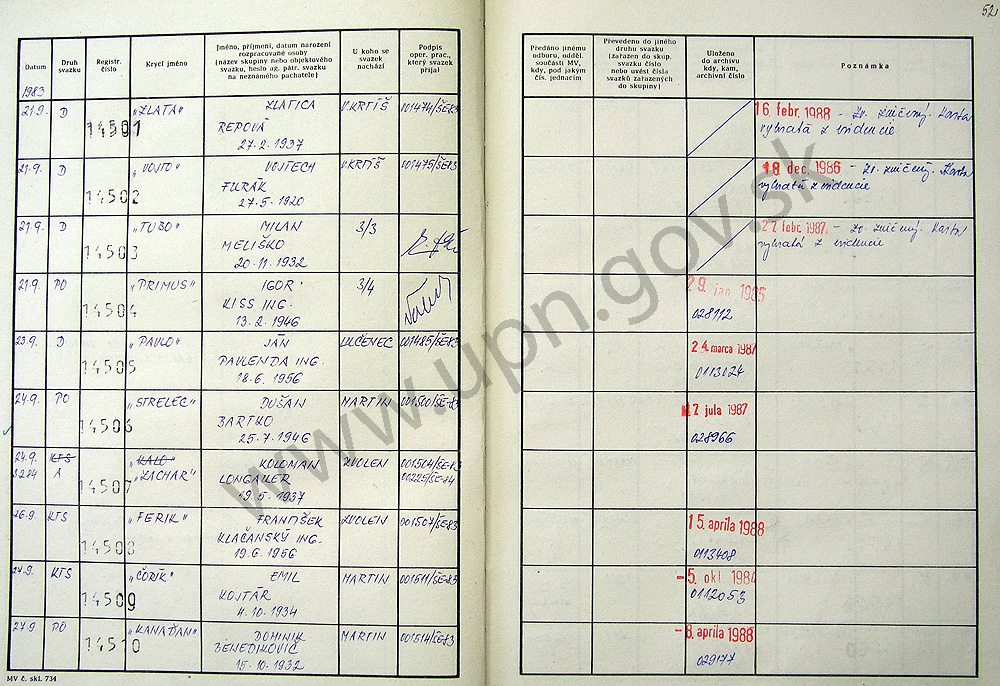 52
Datum
Druh svazku
Registr. číslo
Krycí jméno
Jméno, příjmení, datum narození
rozpracované osoby
(název skupiny nebo objektového
svazku, heslo ag. pátr. svazku
na neznámého pachatele)
U koho se
svazek
nachází
Podpis
oper. prac.,
který svazek
přijal
Předáno jinému
odboru, odděl.
součásti MV,
kdy, pod jakým
čís. jednacím
Převedeno do jiného
druhu svazku
(zařazen do skup.
svazku číslo
nebo uvést čísla
svazků zařazených
do skupiny)
Uloženo
do archivu
kdy, kam,
archivní číslo
Poznámka
1983
21.9. D 14501 "ZLATA" ZLATICA V.KRTÍŠ 001474/ŠE-83
REPOVÁ
27.2.1937
16. febr. 1988 - Zv. zničený. Karta
vybratá z evidencie
21.9. D 14502 "VOJTO" VOJTECH V.KRTÍŠ 001475/ŠE-83
FURÁK
27.5.1920
18. dec. 1986 - Zv. zničený. Karta
vybratá z evidencie
21.9. D 14503 "TUBO" MILAN 3/3
MELIŠKO
20.11.1932
27. febr. 1987 - Zv. zničený. Karta
vybratá z evidencie
21.9. PO 14504 "PRIMUS" IGOR 3/4
KISS ING.
13.2.1946
29. jan. 1985
028112
23.9. D 14505 "PAVLO" JÁN LUČENEC 001485/ŠE-83
PAVLENDA ING.
18.6.1956
24. marca 1987
0113024
24.9. PO 14506 "STRELEC" DUŠAN MARTIN 001500/ŠE-83
BARTKO
25.7.1946
17. jula 1987
028966
24.9. KTS 14507 "KALO" KOLOMAN ZVOLEN 001504/ŠE-83
A "ZACHAR" LONGAUER 00225/ŠE-84
19.5.1937
26.9. KTS 14508 "FERIK" FRANTIŠEK ZVOLEN 001507/ŠE-83
KLAČANSKÝ ING.
19.6.1956
15. aprila 1988
0113408
27.9. KTS 14509 "ČORÍK" EMIL MARTIN 001511/ŠE-83
KOJTÁR
4.10.1934
-5. okt 1984
0112053
27.9. PO 14510 "KANAĎAN" DOMINIK MARTIN 001514/ŠE-83
BENEDIKOVIČ
15.10.1932
-8. aprila 1988
029177
MV č. skl. 734
www.upn.gov.sk